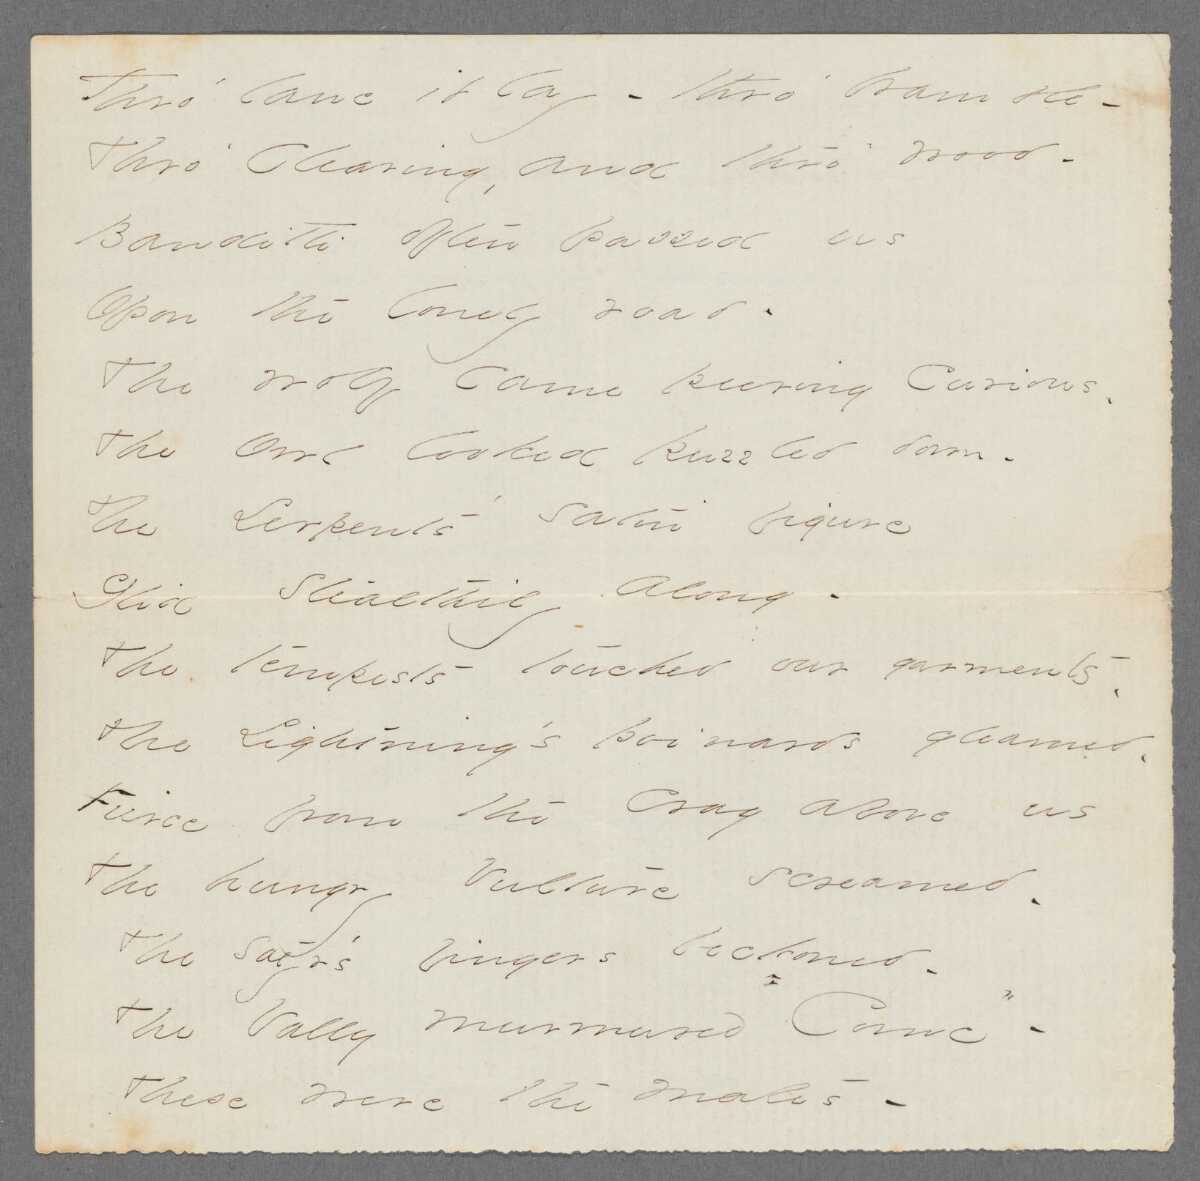 Thro' lane it lay - thro' bramble -
Thro' Clearing, and thro' wood -
Banditti often passed us
Opon the lonely road.
The Wolf Came peering Curious,
The Owl looked puzzled down -
The Serpent's satin figure
Glid Stealthily Along -
The tempests touched our garments,
The Lightning's poinards gleamed,
Fierce from the Crag above us
The hungry Vulture screamed,
The Satyr's fingers beckoned -
The Vally murmured "Come" -
These were the Mates -